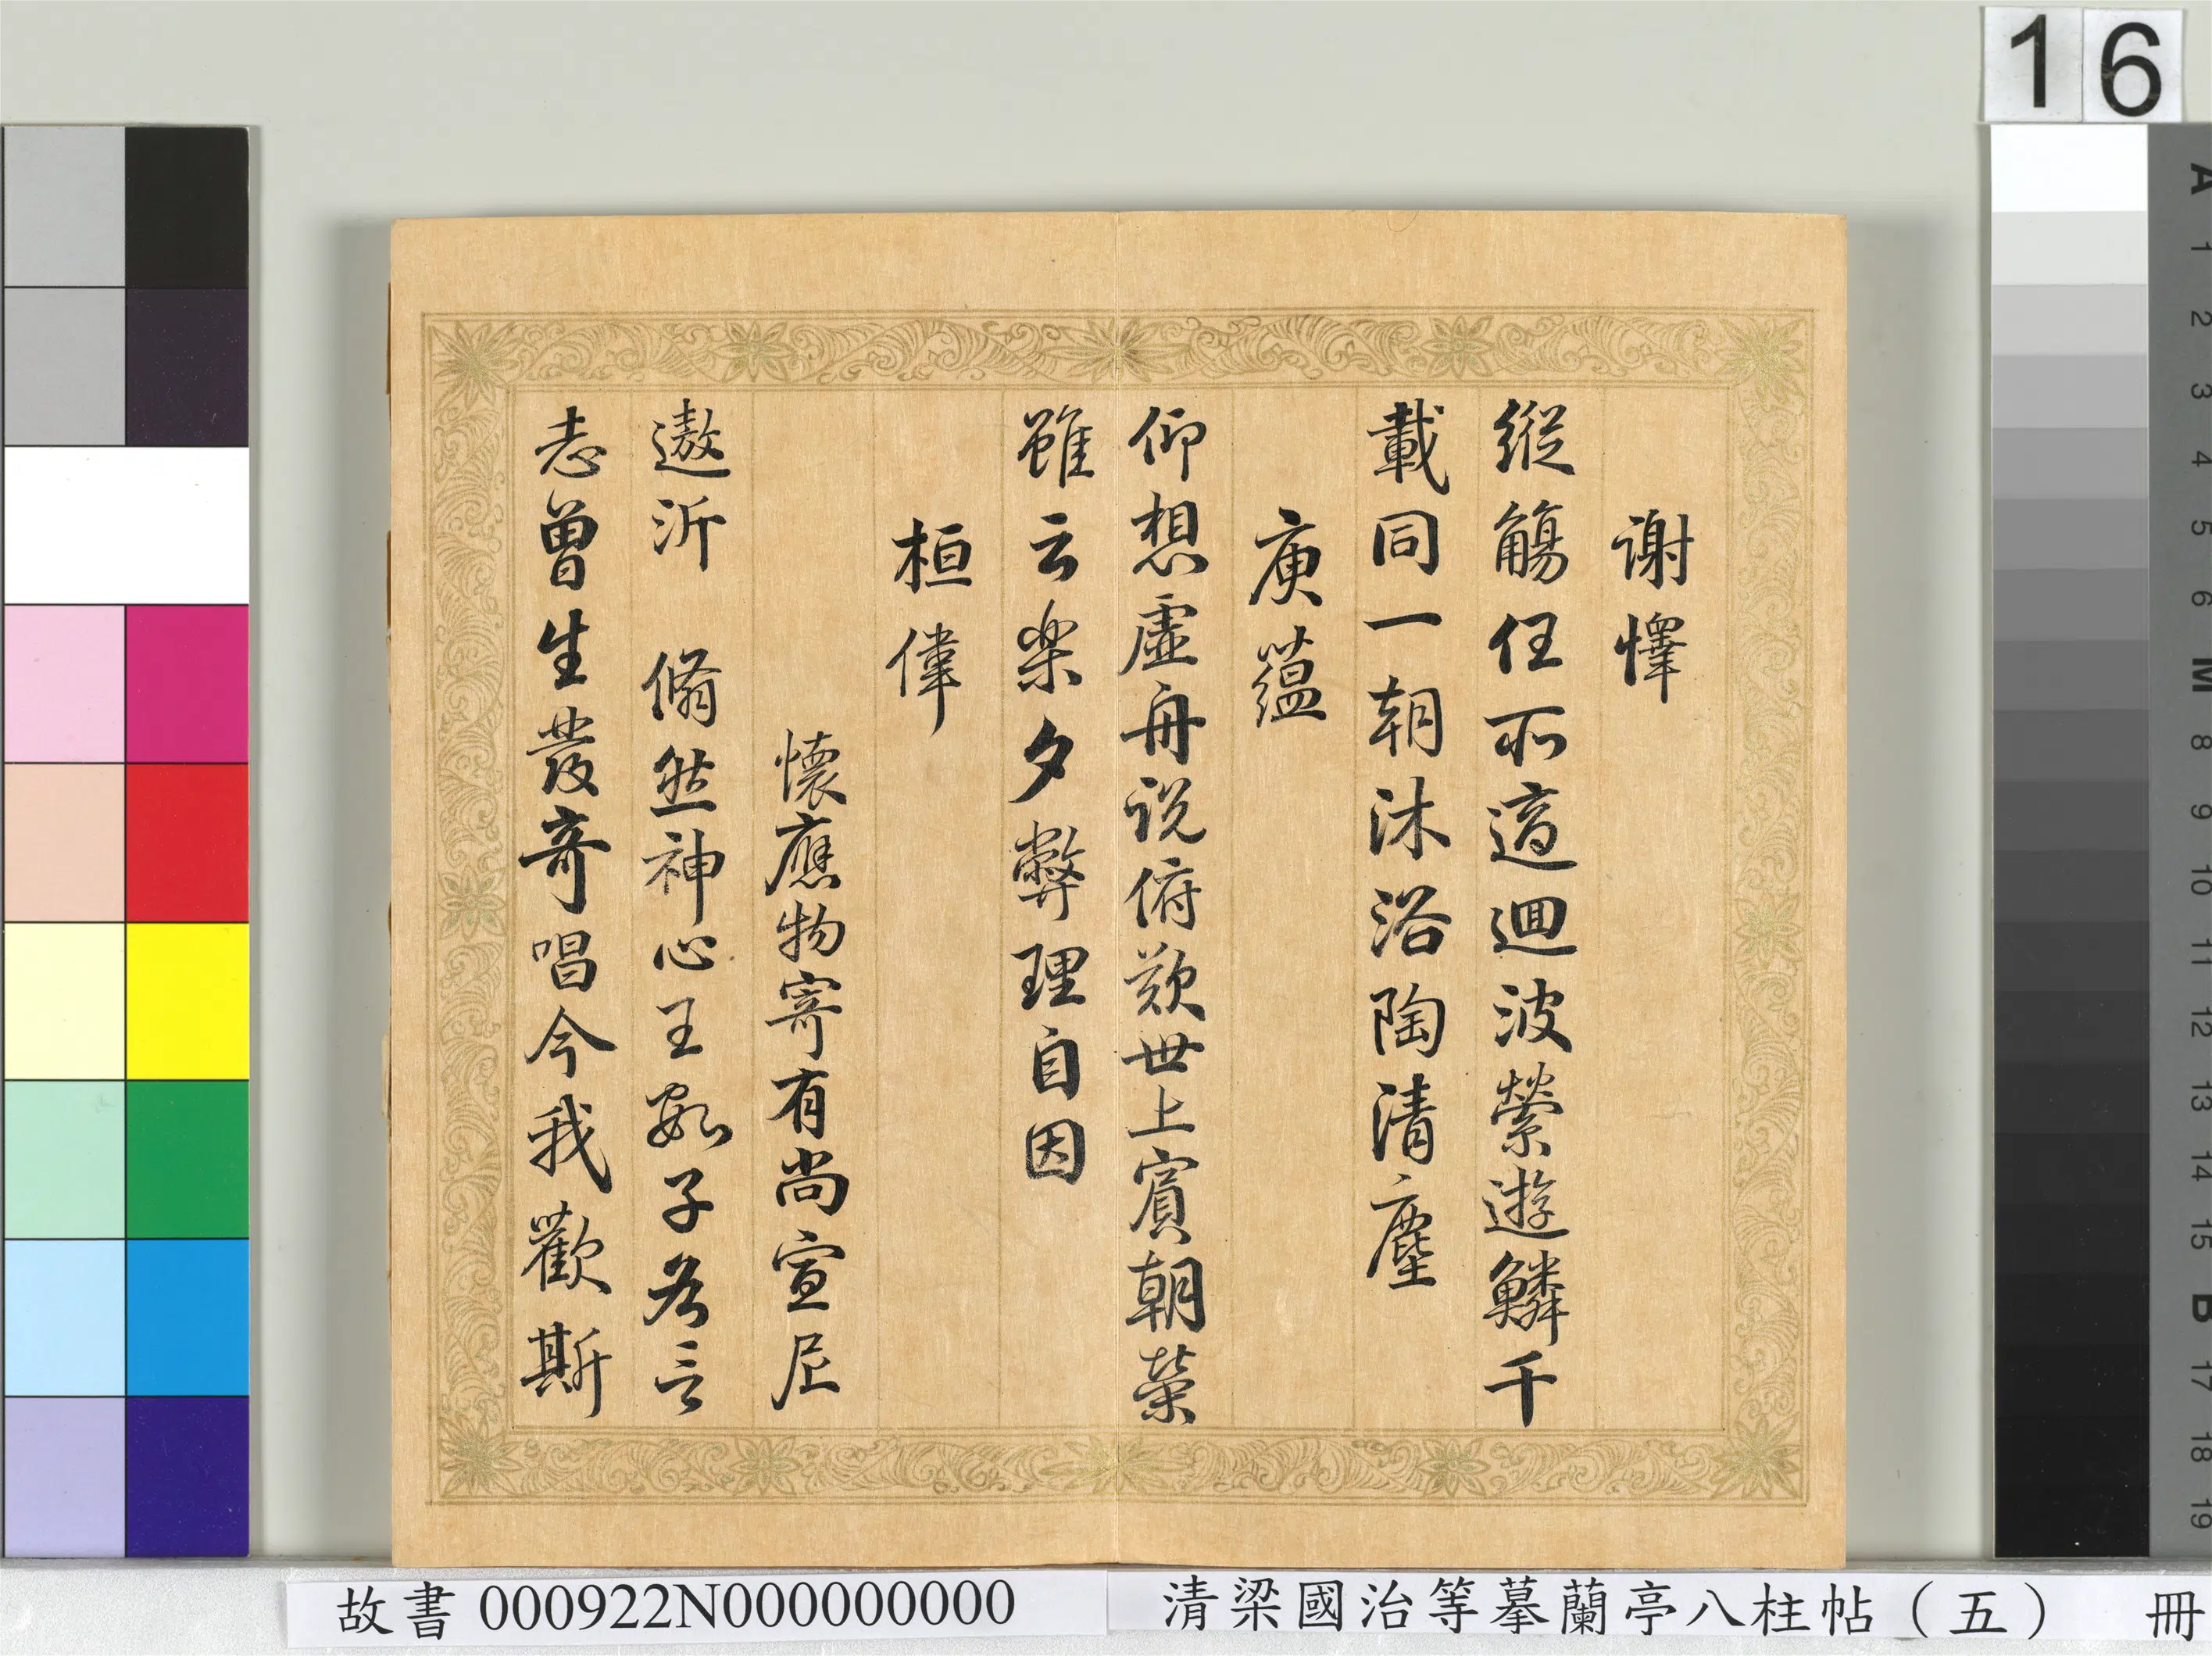 16
謝懌
縱觴任所適迴波縈遊鱗千
載同一朝沐浴陶清塵
庾蘊
仰想虛舟說俯歎世上賓朝榮
雖云樂夕弊理自因
桓偉
懷應物寄有尚宣尼
遨沂 翛然神心王數子各言
志曾生發奇唱今我歡斯
故書 000922N000000000 清梁國治等摹蘭亭八柱帖（五） 冊
A 1 2 3 4 5 6 M 8 9 10 11 12 13 14 15 B 17 18 19